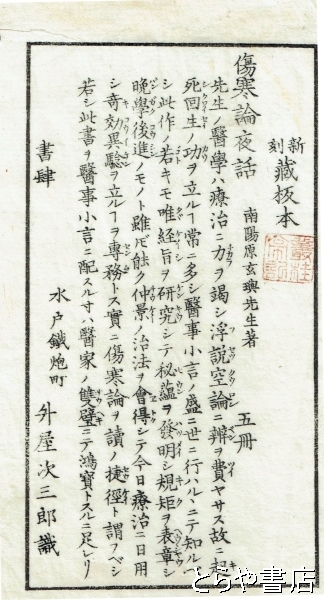 新刻 藏板本
傷寒論夜話 南陽原玄璵先生著 五冊
先生ノ醫學ハ療治ニ力ヲ竭シ浮説空論ニ辨ヲ費ヤサス故ニ起
死回生ノ功ヲ立ルヿ常ニ多シ醫事小言ノ盛ニ世ニ行ハルヽニテ知ルヘ
シ此作ノ若キモ唯經旨ヲ研究シテ秘蘊ヲ發明シ規矩ヲ表章シ
晩學後進ノモノト雖𪜈能ク仲景ノ治法ヲ會得シテ今日療治ニ日用
シ奇効異驗ヲ立ルヿヲ專務トス實ニ傷寒論ヲ讀ノ捷徑ト謂フヘシ
若シ此書ヲ醫事小言ニ配スル寸ハ醫家ノ雙璧ニテ鴻寶トスルニ足レリ
書肆 水戸鐵炮町 外屋次三郎識
とらや書店